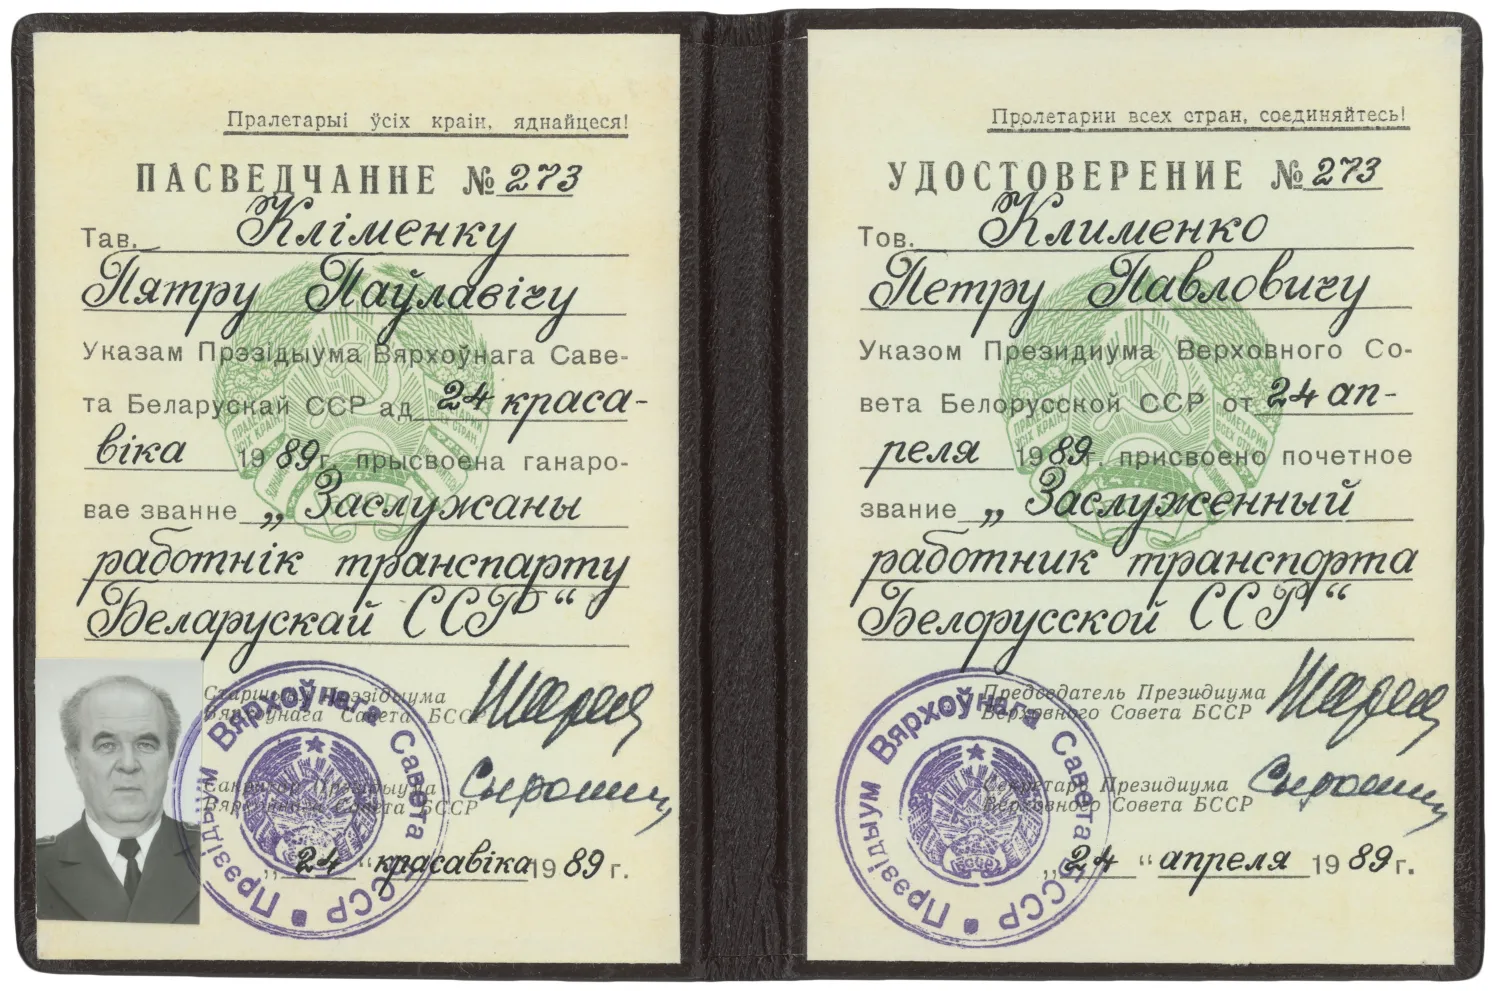 Пралетарыі ўсіх краін, яднайцеся!
ПАСВЕДЧАННЕ № 273
Тав. Кліменку
Пятру Паўлавічу
Указам Прэзідыума Вярхоўнага Саве-
та Беларускай ССР ад 24 краса-
віка 1989 г. прысвоена ганаро-
вае званне „Заслужаны
работнік транспарту
Беларускай ССР“
Старшыня Прэзідыума
Вярхоўнага Савета БССР
Сакратар Прэзідыума
Вярхоўнага Савета БССР
„24“ красавіка 1989 г.
Прэзідыум Вярхоўнага Савета БССР
Пролетарии всех стран, соединяйтесь!
УДОСТОВЕРЕНИЕ № 273
Тов. Клименко
Петру Павловичу
Указом Президиума Верховного Со-
вета Белорусской ССР от 24 ап-
реля 1989 г. присвоено почетное
звание „Заслуженный
работник транспорта
Белорусской ССР“
Председатель Президиума
Верховного Совета БССР
Секретарь Президиума
Верховного Совета БССР
„24“ апреля 1989 г.
Прэзідыум Вярхоўнага Савета БССР